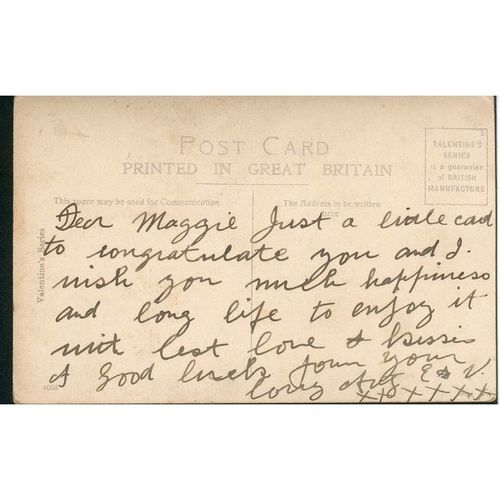 POST CARD
PRINTED IN GREAT BRITAIN
VALENTINE'S
SERIES
is a guarantee
of BRITISH
MANUFACTURE
This space may be used for Communication
The Address to be written
here
Valentine's Series
Dear Maggie Just a little card
to congratulate you and I
wish you much happiness
and long life to enjoy it
with best love & kisses
& Good luck from your
loving E & V.
xxxxxxx
4058